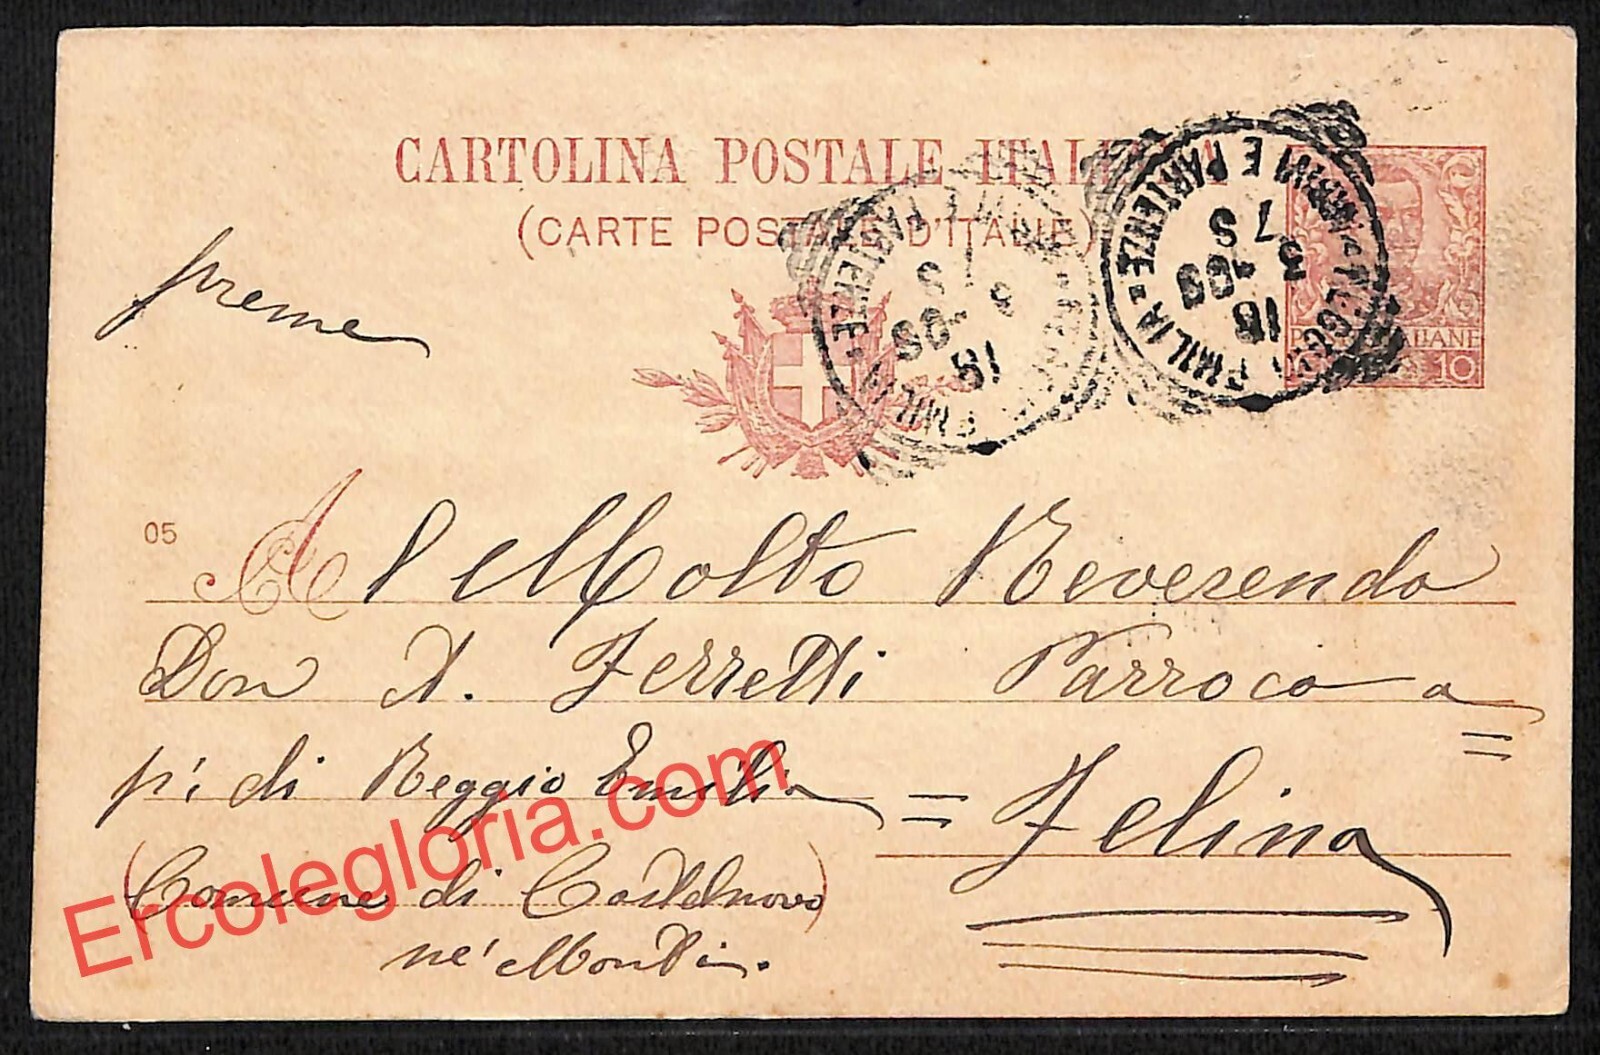 CARTOLINA POSTALE ITALIANA
(CARTE POSTALE D'ITALIE)
POSTE ITALIANE
10
EMILIA - ARRIVI E PARTENZE
18
3
7 S
EMILIA
PARTENZE
18
preme
05
Al Molto Reverendo
Don A. Ferretti Parroco a
pi di Reggio Emilia = Felina =
(Comune di Castelnuovo
ne' Monti.
Ercolegloria.com